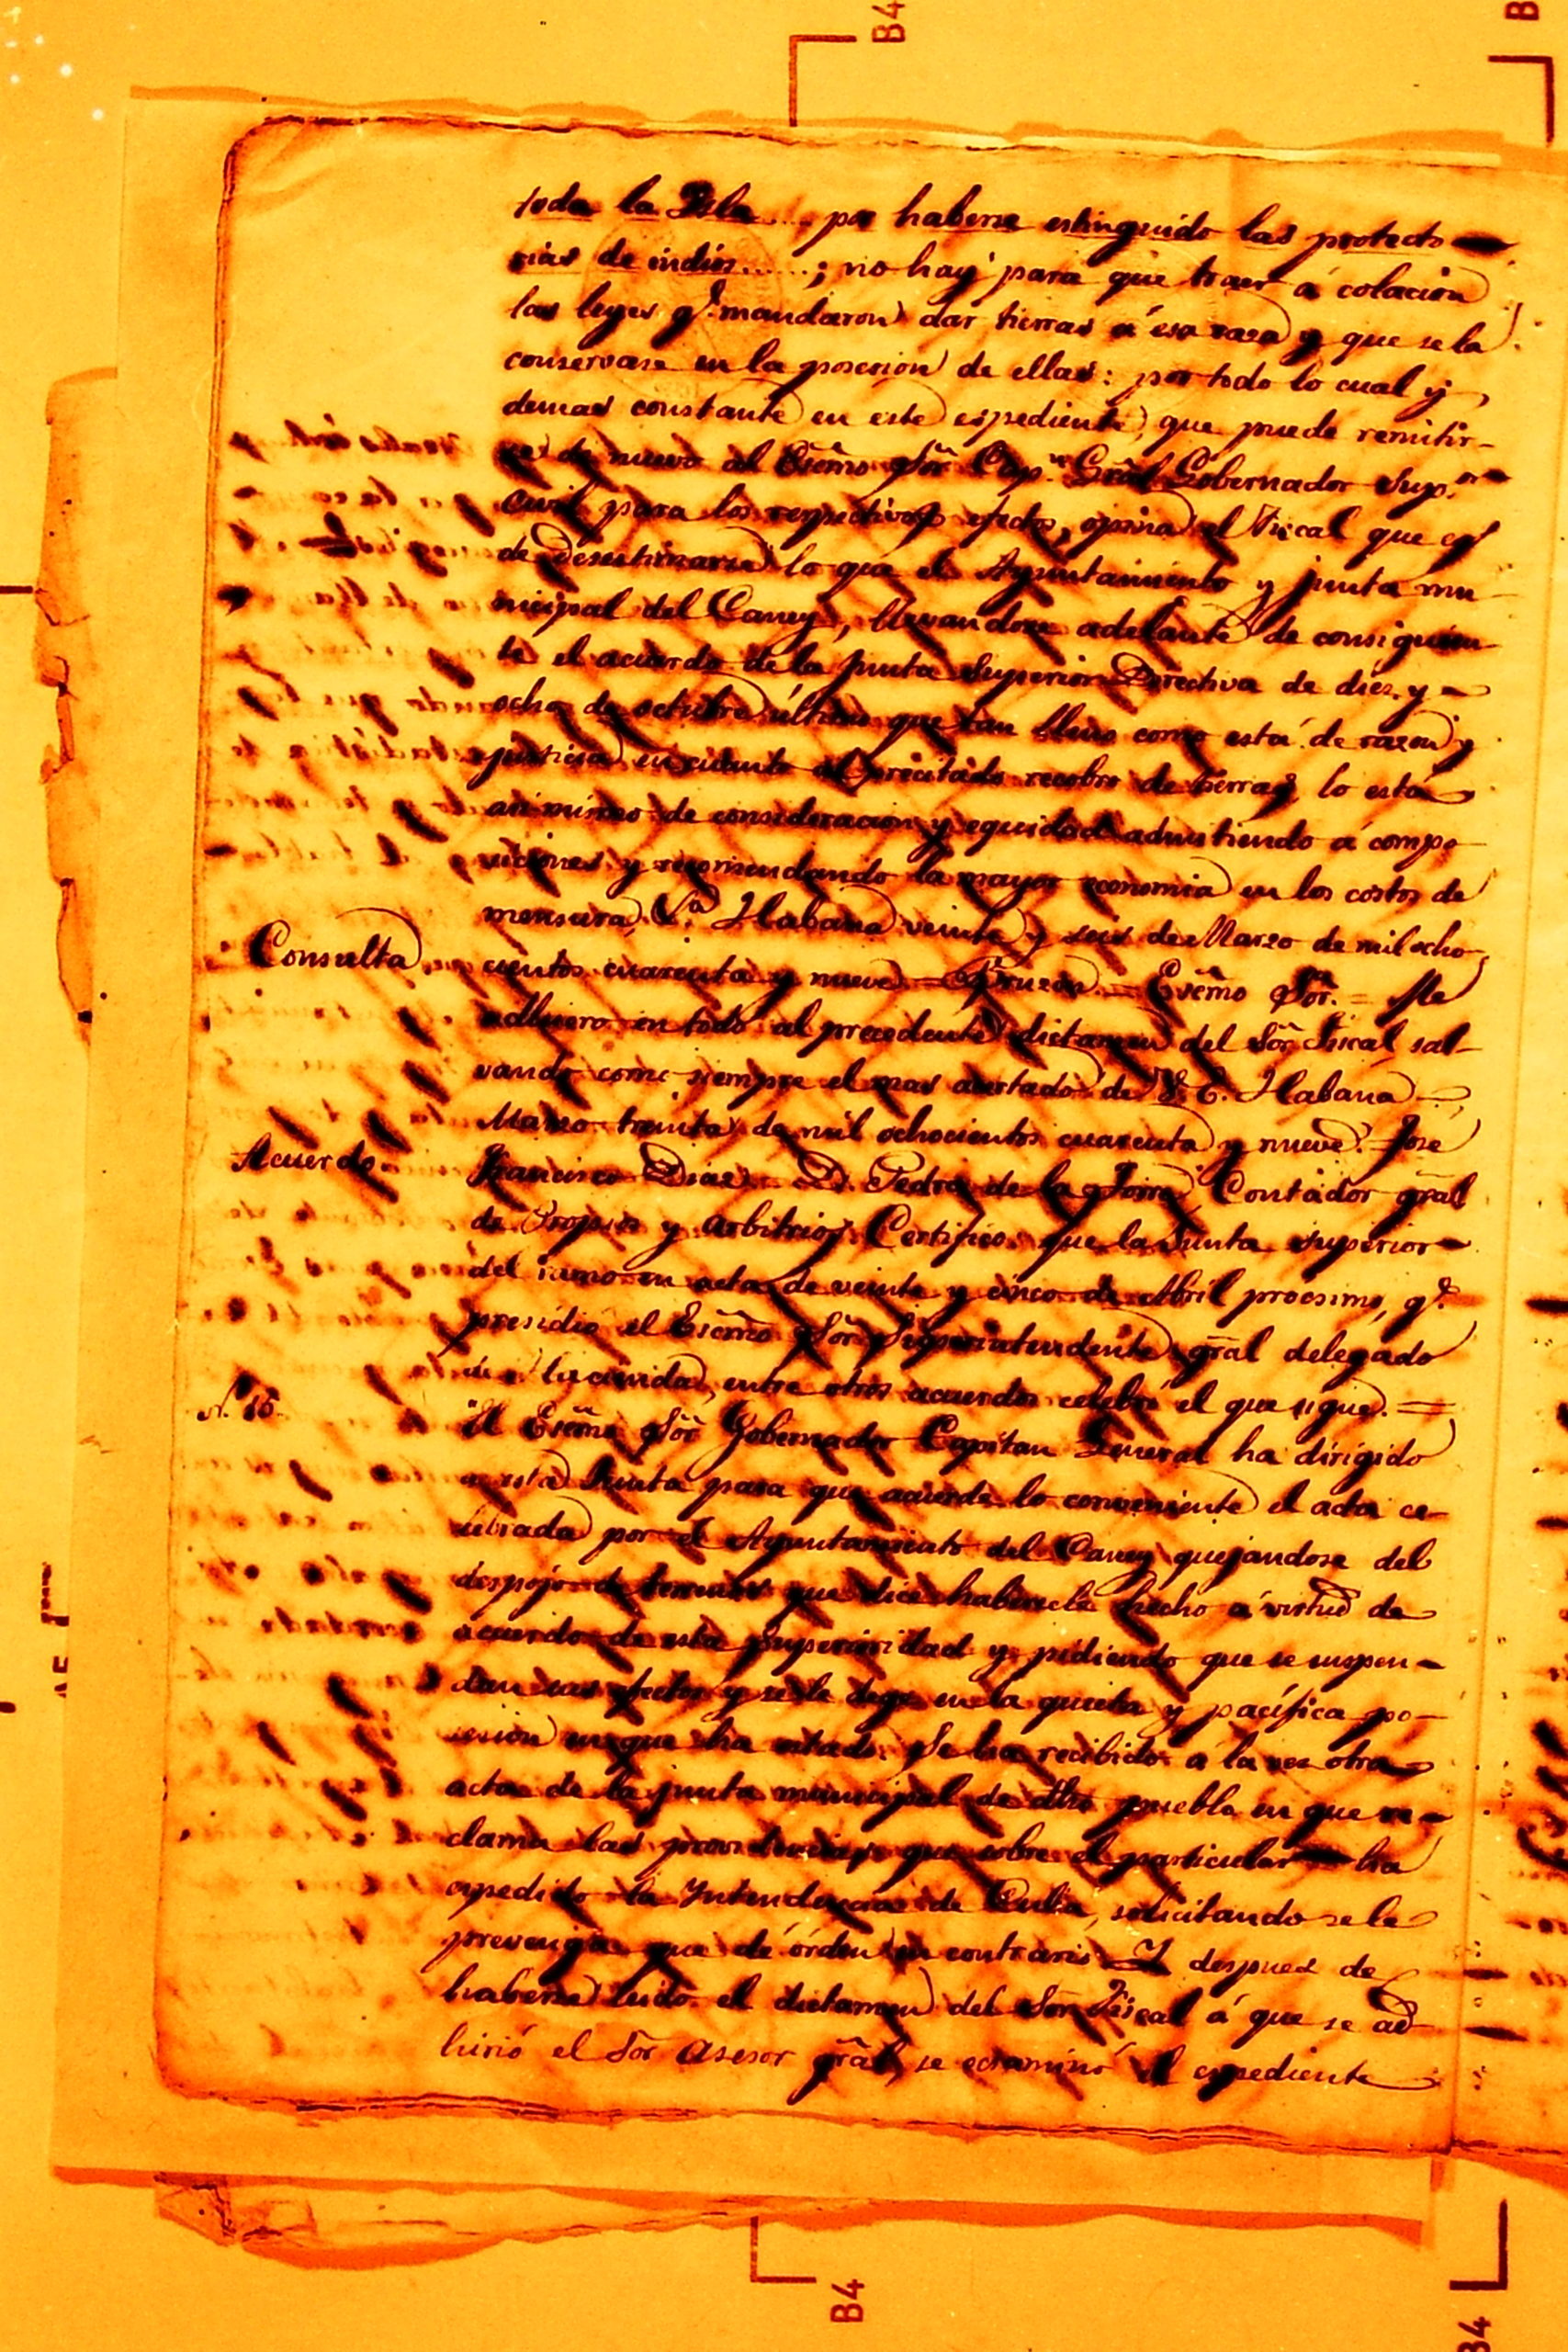 toda la Isla...., por haberse estinguido las protecto
rias de indios......; no hay para que traer á colacion
las leyes q.e mandaron dar tierras á esa raza y que se la
conservase en la posesion de ellas: por todo lo cual y
demas constante en este espediente, que puede remitir-
se de nuevo al Escmo Sór Cap.n Grãl Gobernador Sup.or
civil para los respectivos efectos, opina el Fiscal que es
de desestimarse lo que el Ayuntamiento y junta mu
nicipal del Caney, llevandose adelante de consiguien
te el acuerdo de la Junta Superior Directiva de diez y
ocho de octubre último que tan lleno como está de razon y
justicia en cuanto al precitado recobro de tierras, lo está
asimismo de consideracion y equidad admitiendo á compo
siciones y recomendando la mayor economia en los costos de
mensura. Habana veinte y seis de Marzo de mil ocho
Consulta cientos cuarenta y nueve = = Escmo Sór. = Me
adhiero en todo al precedente dictamen del Sór Fiscal sal-
vando como siempre el mas acertado de V. E. Habana
Marzo treinta de mil ochocientos cuarenta y nueve = José
Acuerdo Francisco Diaz = D. Pedro de la Torre Contador grãl
de Propios y Arbitrios. Certifico: que la Junta Superior
del ramo en acta de veinte y cinco de Abril procsimo, q.e
presidió el Escmo Sór Superintendente grãl delegado
entre otros acuerdos celebró el que sigue. =
N. 16. "El Escmo Sór Gobernador Capitan General ha dirigido
a esta Junta para que acuerde lo conveniente el acta ce-
lebrada por el Ayuntamiento del Caney quejandose del
despojo de terrenos que dice habersele hecho á virtud de
acuerdo de esta Superioridad y pidiendo que se suspen-
dan sus efectos y se le deje en la quieta y pacífica po-
sesion en que ha estado. Se ha recibido á la vez otra
acta de la junta municipal de dho pueblo en que re-
clama las providencias que sobre el particular ha
espedido la Intendencia de Cuba, solicitando se le
prevenga que dé órden en contrario. Y despues de
haberse leido el dictamen del Sór Fiscal á que se ad
hirió el Sór Asesor grãl, se ecsaminó el espediente
B4
B4